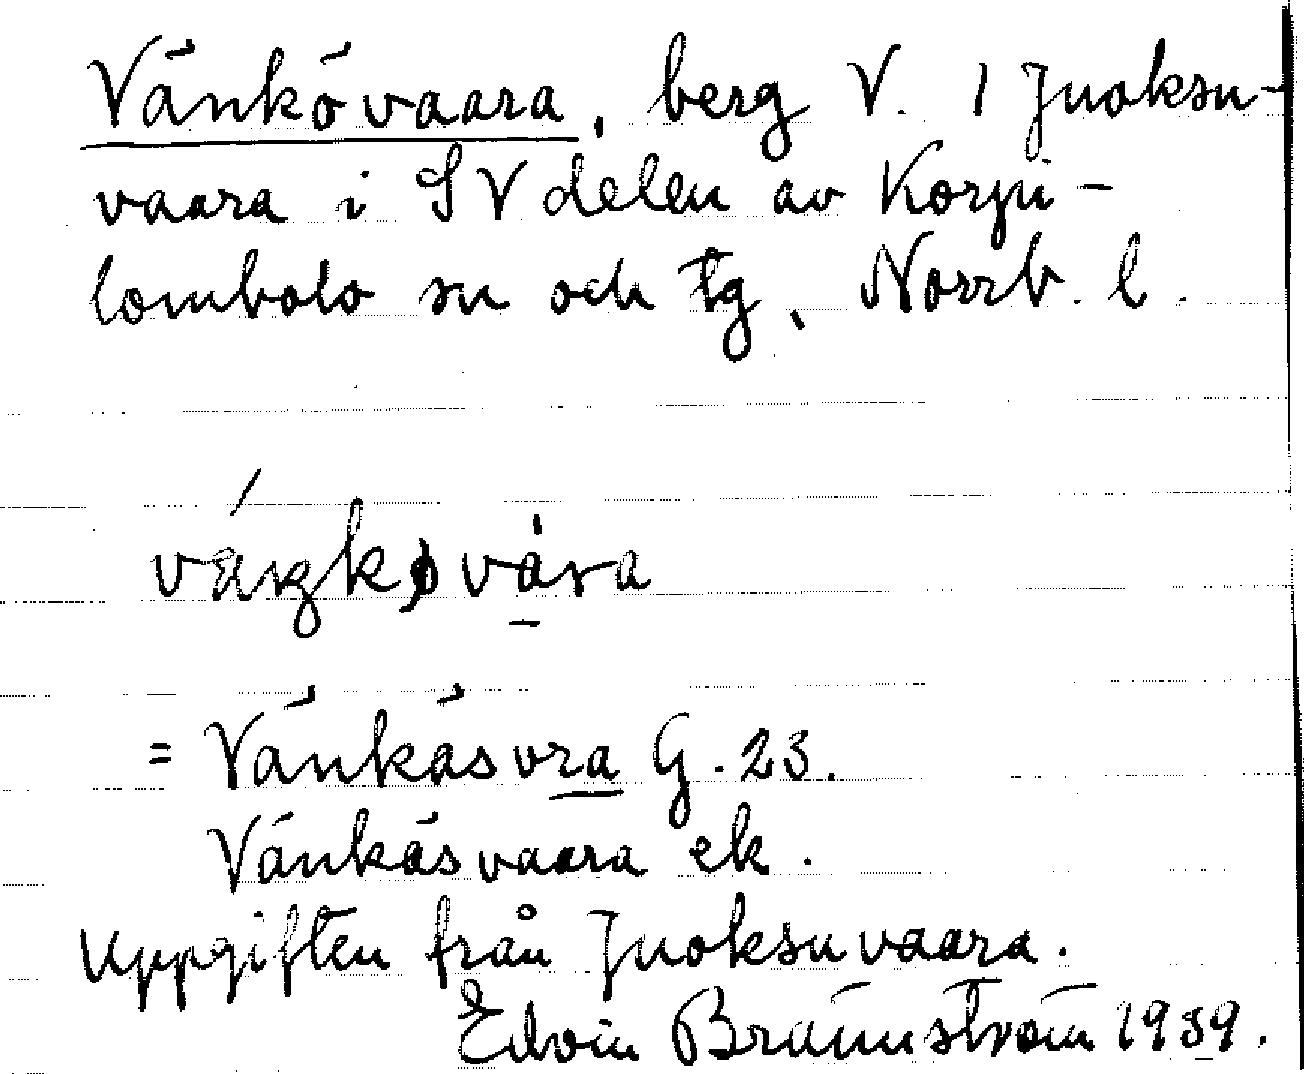 Vänkövaara, berg V. i Juoksu-
vaara i SV delen av Korpi-
lombolo sn och tg, Norrb. l.
= Vänkäsvra G. 23.
Vänkäsvaara ek.
Uppgiften från Juoksuvaara.
Edvin Brännström 1939.